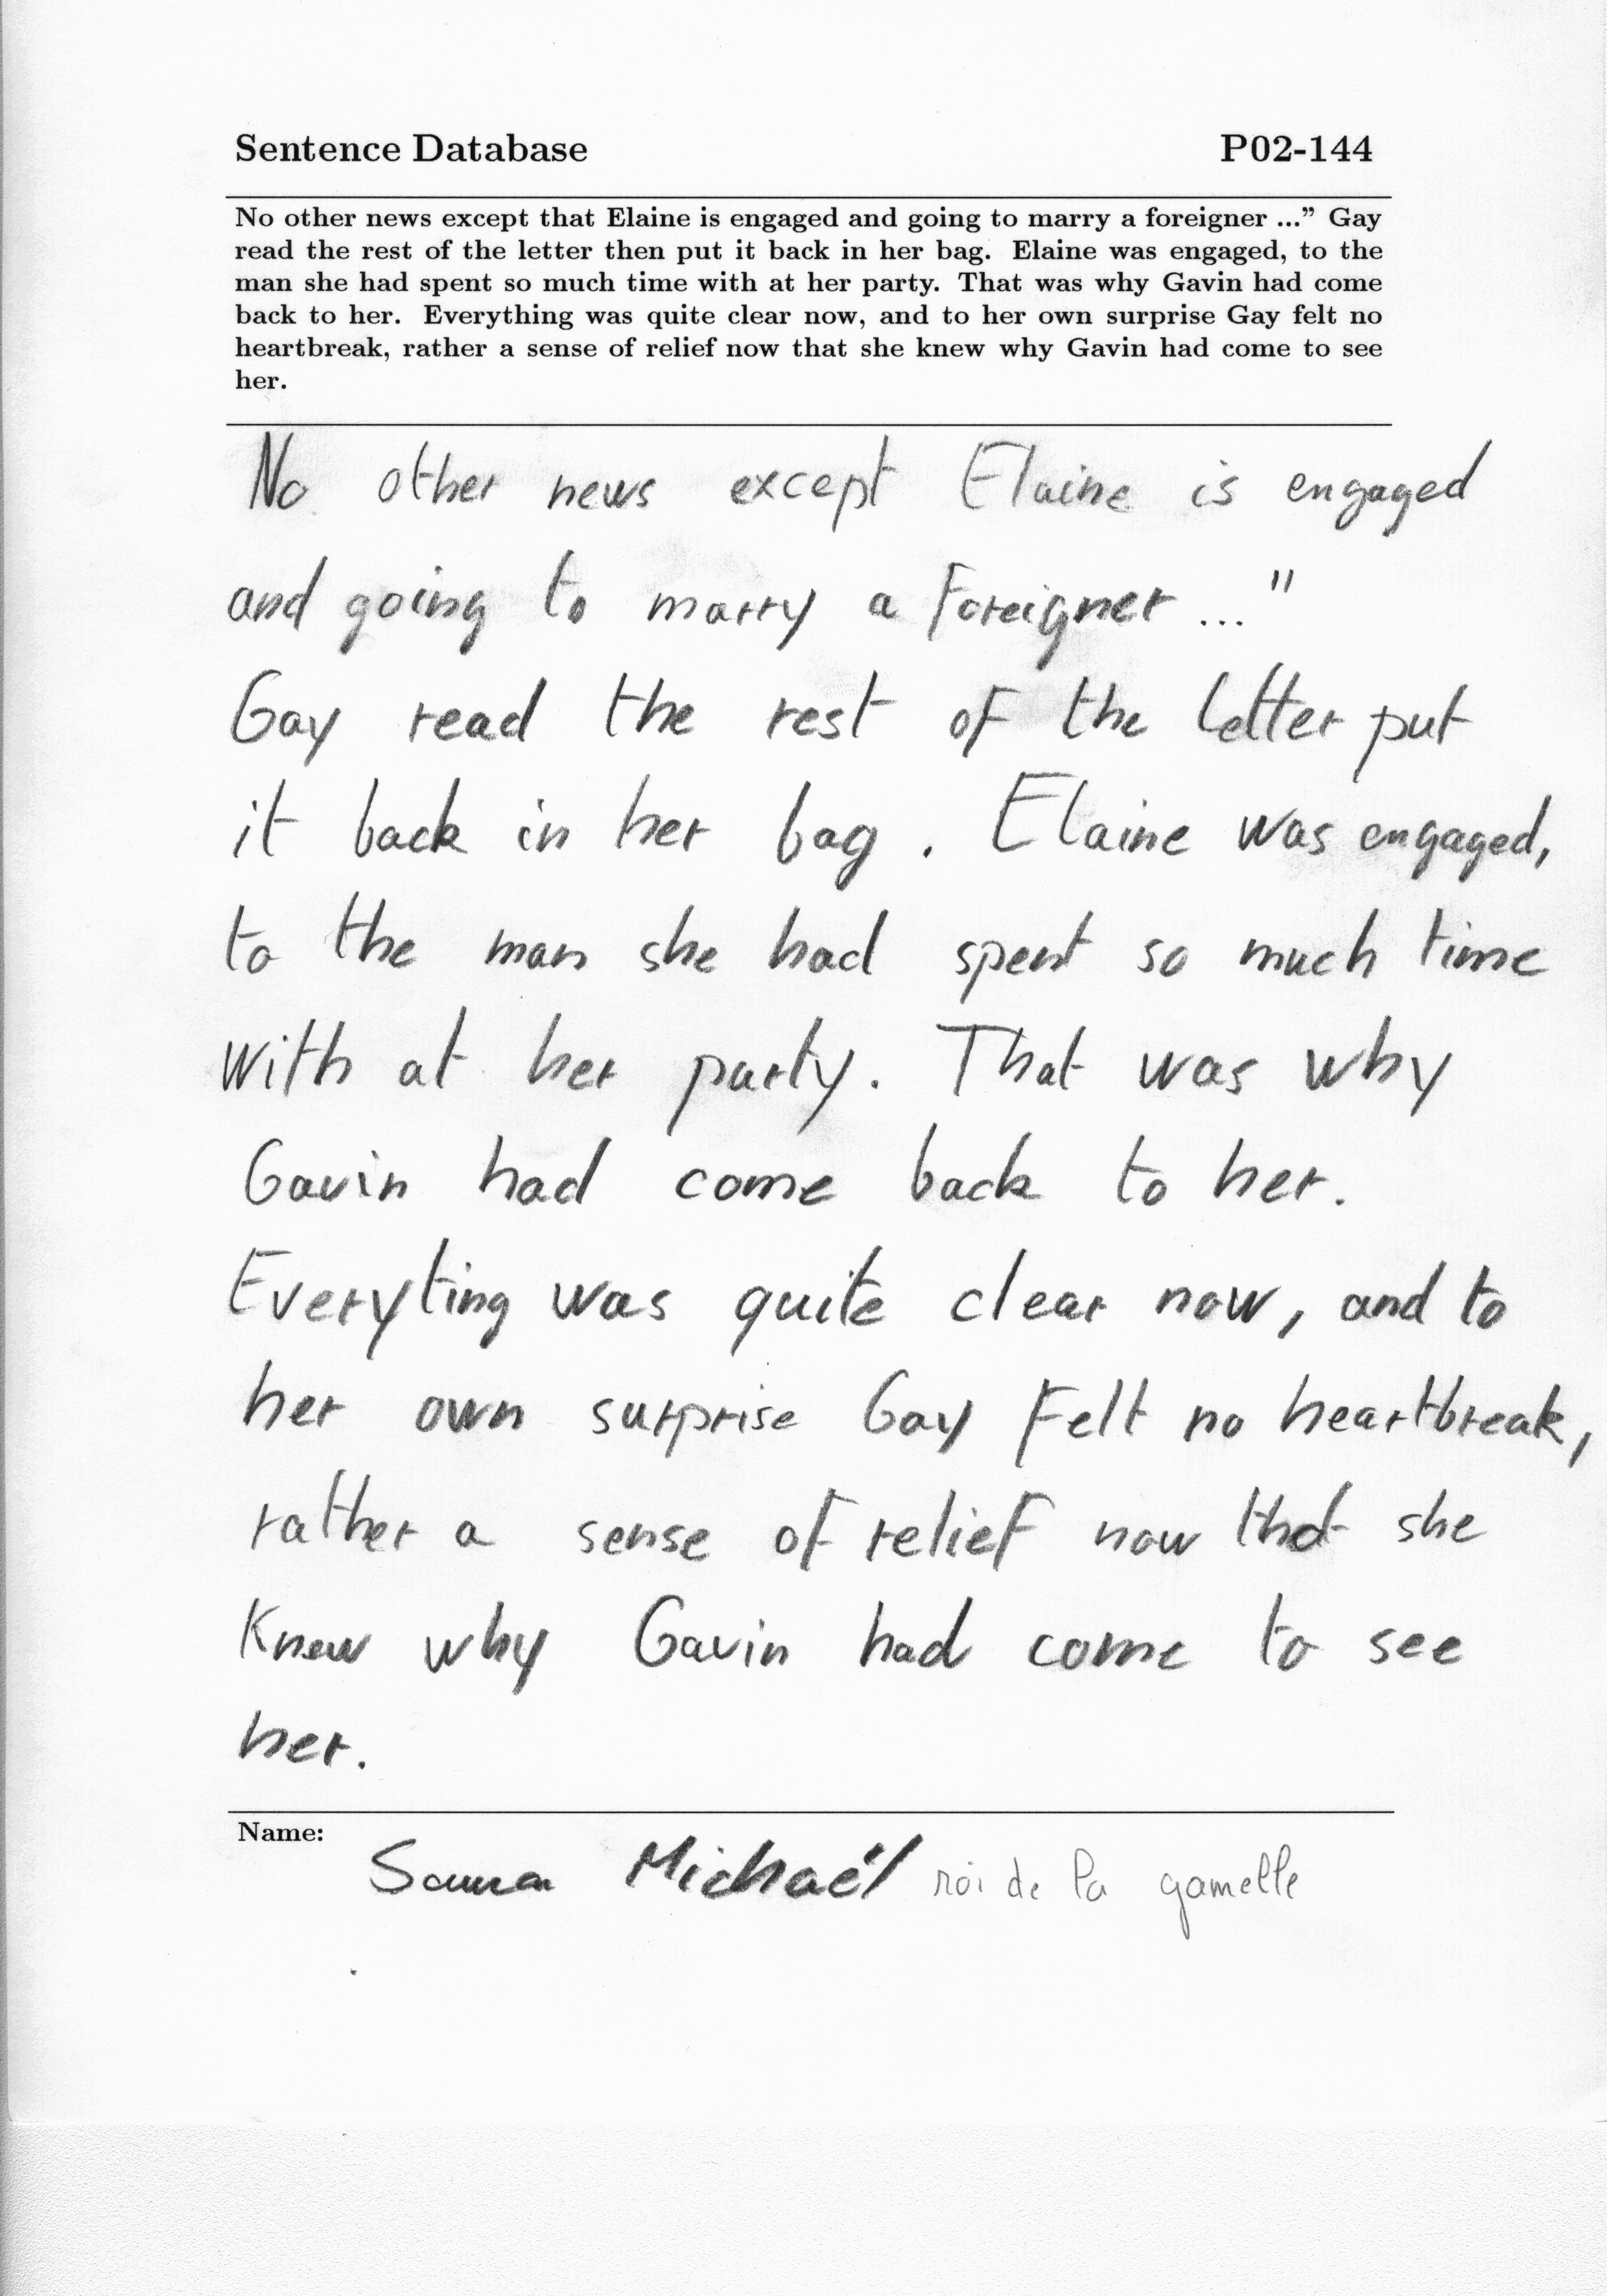 Sentence Database P02-144
No other news except that Elaine is engaged and going to marry a foreigner ...” Gay
read the rest of the letter then put it back in her bag. Elaine was engaged, to the
man she had spent so much time with at her party. That was why Gavin had come
back to her. Everything was quite clear now, and to her own surprise Gay felt no
heartbreak, rather a sense of relief now that she knew why Gavin had come to see
her.
No other news except Elaine is engaged
and going to marry a foreigner ..."
Gay read the rest of the letter put
it back in her bag . Elaine was engaged,
to the man she had spent so much time
with at her party. That was why
Gavin had come back to her.
Everyting was quite clear now, and to
her own surprise Gay Felt no heartbreak,
rather a sense of relief now that she
Knew why Gavin had come to see
her.
Name: Michaël roi de la gamelle